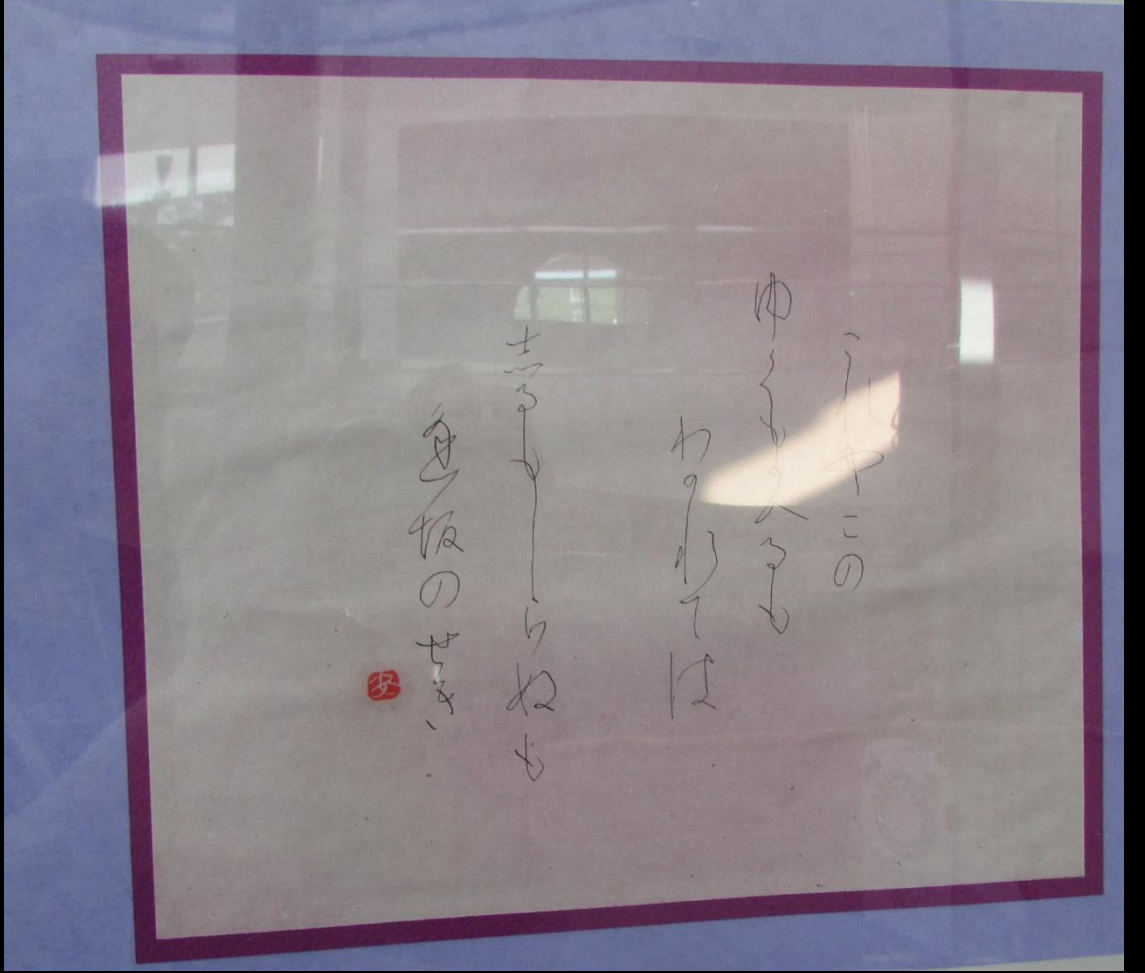 これやこの
ゆくもかへるも
わかれては
志るもしらぬも
逢坂のせき
安